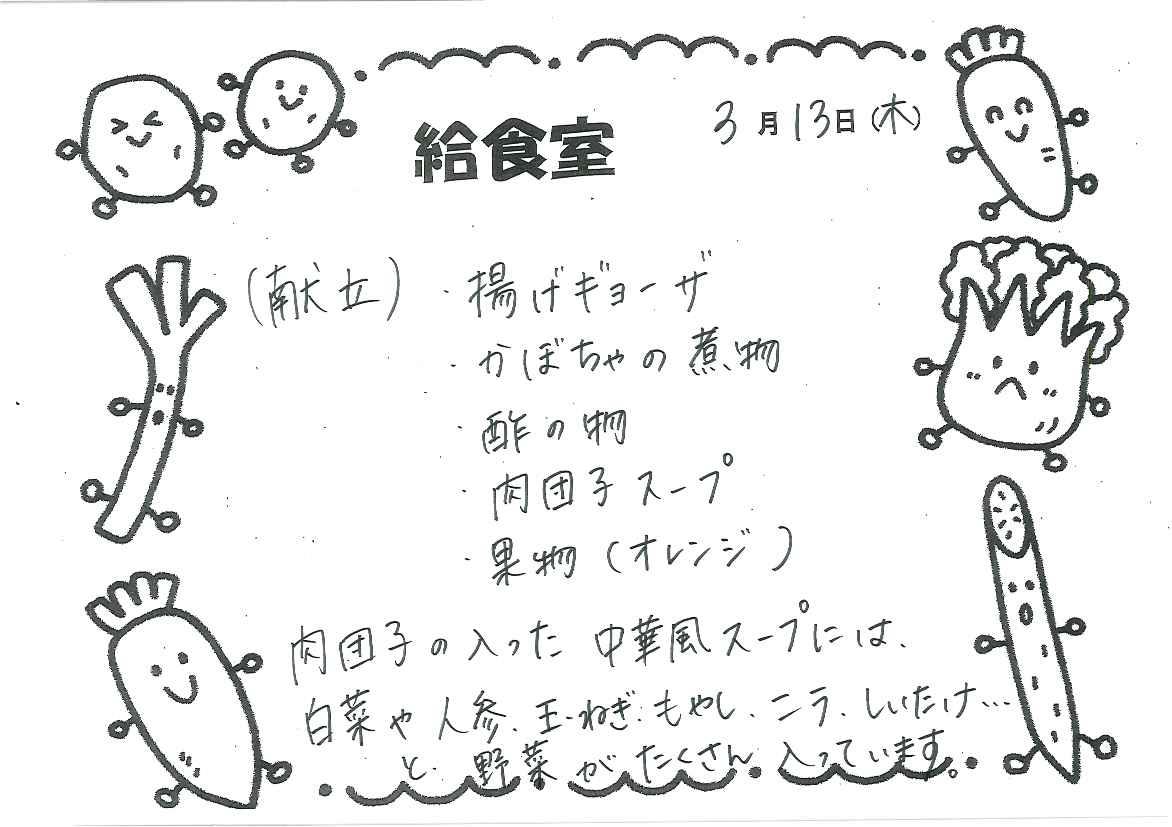 給食室
3月13日(木)
(献立)・揚げギョーザ
・かぼちゃの煮物
・酢の物
・肉団子スープ
・果物(オレンジ)
肉団子の入った中華風スープには、
白菜や人参、玉ねぎ、もやし、ニラ、しいたけ…
と、野菜がたくさん入っています。